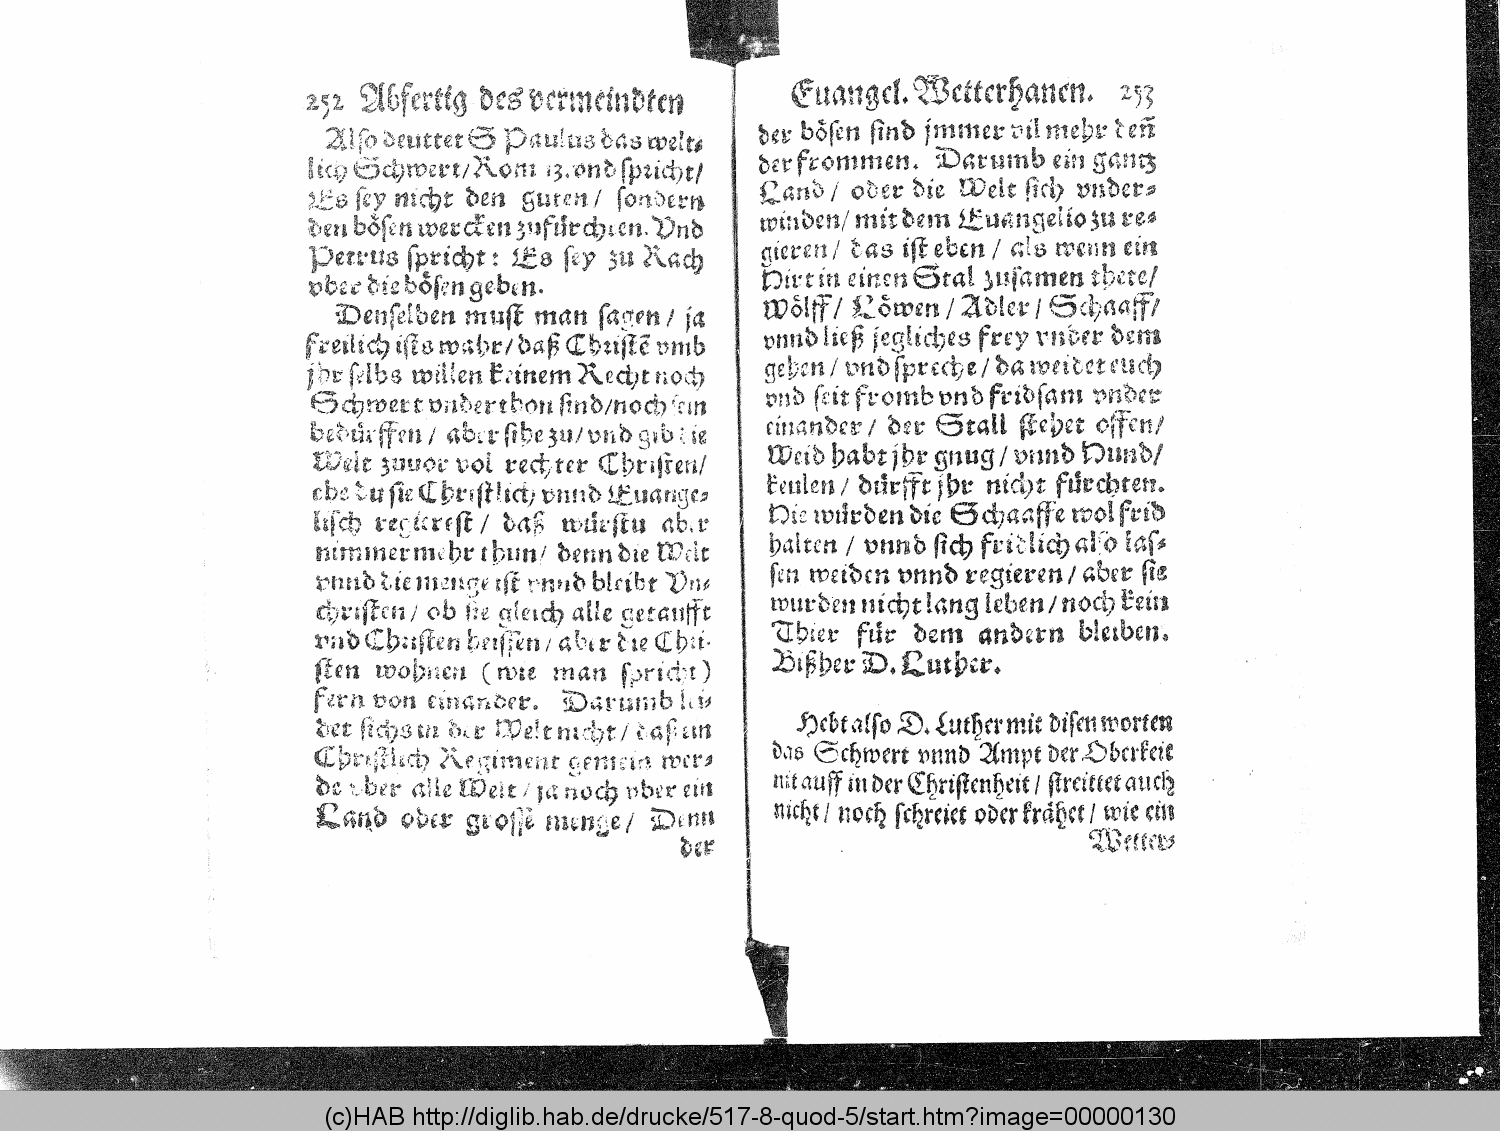 252 Abfertig des vermeindten
Also deuttet S Paulus das welt⸗
lich Schwert/ Rom 13. vnd spricht/
Es sey nicht den guten/ sondern
den bösen wercken zufürchten. Vnd
Petrus spricht: Es sey zu Rach
vber die bösen geben.
Denselben must man sagen/ ja
freilich ists wahr/ daß Christē vmb
jhr selbs willen keinem Recht noch
Schwert vnderthon sind/ noch sein
bedürffen/ aber sihe zu/ vnd gib die
Welt zuuor vol rechter Christen/
ehe du sie Christlich vnnd Euange⸗
lisch regierest/ daß würstu aber
nimmermehr thun/ denn die Welt
vnnd die menge ist vnnd bleibt Vn⸗
christen/ ob sie gleich alle getaufft
vnd Christen heissen/ aber die Chri⸗
sten wohnen (wie man spricht)
fern von einander. Darumb lei⸗
det sichs in der Welt nicht/ daß ein
Christlich Regiment gemein wer⸗
de vber alle Welt/ ja noch vber ein
Land oder grosse menge/ Denn
der
Euangel. Wetterhanen. 253
der bösen sind jmmer vil mehr deñ
der frommen. Darumb ein gantz
Land/ oder die Welt sich vnder⸗
winden/ mit dem Euangelio zu re⸗
gieren/ das ist eben/ als wenn ein
Hirt in einen Stal zusamen thete/
Wölff/ Löwen/ Adler/ Schaaff/
vnnd ließ jegliches frey vnder dem
gehen/ vnd spreche/ da weidet euch
vnd seit fromb vnd fridsam vnder
einander/ der Stall stehet offen/
Weid habt jhr gnug/ vnnd Hund/
keulen/ dürfft jhr nicht fürchten.
Hie würden die Schaaffe wol frid
halten/ vnnd sich fridlich also las⸗
sen weiden vnnd regieren/ aber sie
wurden nicht lang leben/ noch kein
Thier für dem andern bleiben.
Bißher D. Luther.
Hebt also D. Luther mit disen worten
das Schwert vnnd Ampt der Oberkeit
nit auff in der Christenheit/ streittet auch
nicht/ noch schreiet oder krähet/ wie ein
Wetter⸗
(c)HAB http://diglib.hab.de/drucke/517-8-quod-5/start.htm?image=00000130